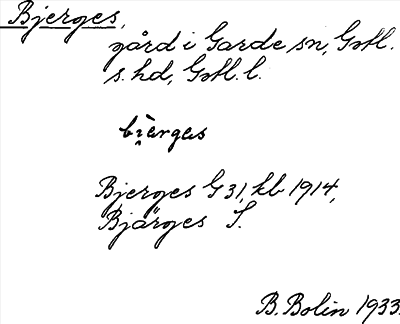 Bjerges,
gård i Garde sn, Gotl.
s. hd, Gotl. l.
bi̯èrgəs
Bjerges G 31, kb 1914,
Bjärges S.
B. Bolin 1933.